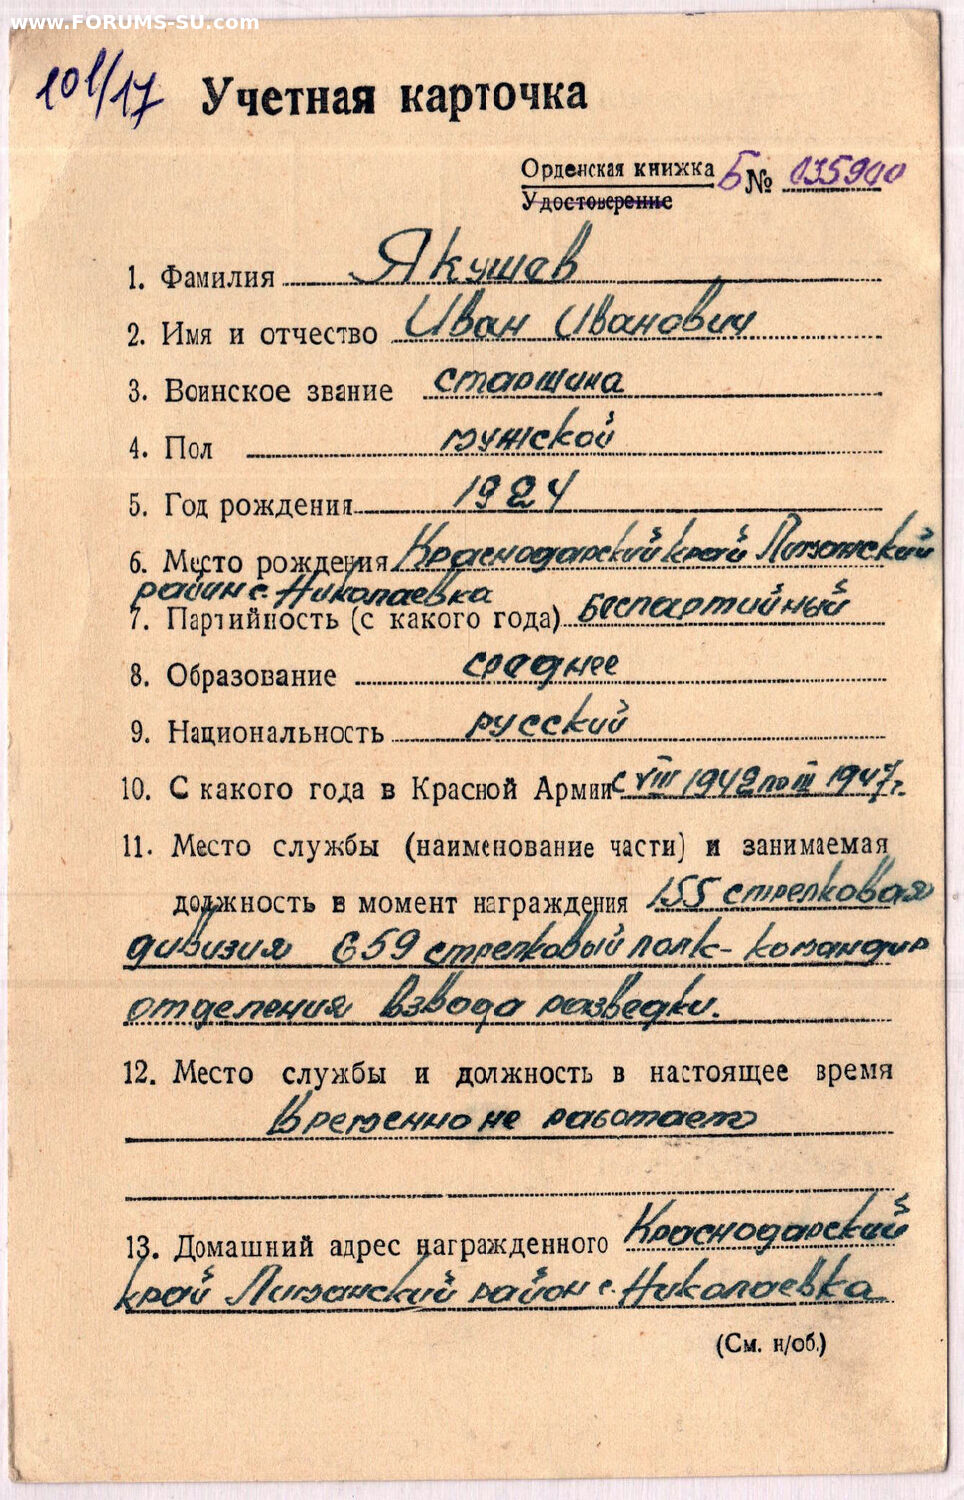 www.FORUMS-SU.com
101/17
Учетная карточка
Орденская книжка Б № 035900
Удостоверение
1. Фамилия Якушев
2. Имя и отчество Иван Иванович
3. Воинское звание старшина
4. Пол мужской
5. Год рождения 1924
6. Место рождения Краснодарский край Лиманский
район с. Николаевка
7. Партийность (с какого года) Беспартийный
8. Образование среднее
9. Национальность русский
10. С какого года в Красной Армии с VIII 1942 по III 1947 г.
11. Место службы (наименование части) и занимаемая
должность в момент награждения 155 стрелковая
дивизия 659 стрелковый полк - командир
отделения взвода разведки.
12. Место службы и должность в настоящее время
Временно не работает
13. Домашний адрес награжденного Краснодарский
край Лиманский район с. Николаевка
(См. н/об.)